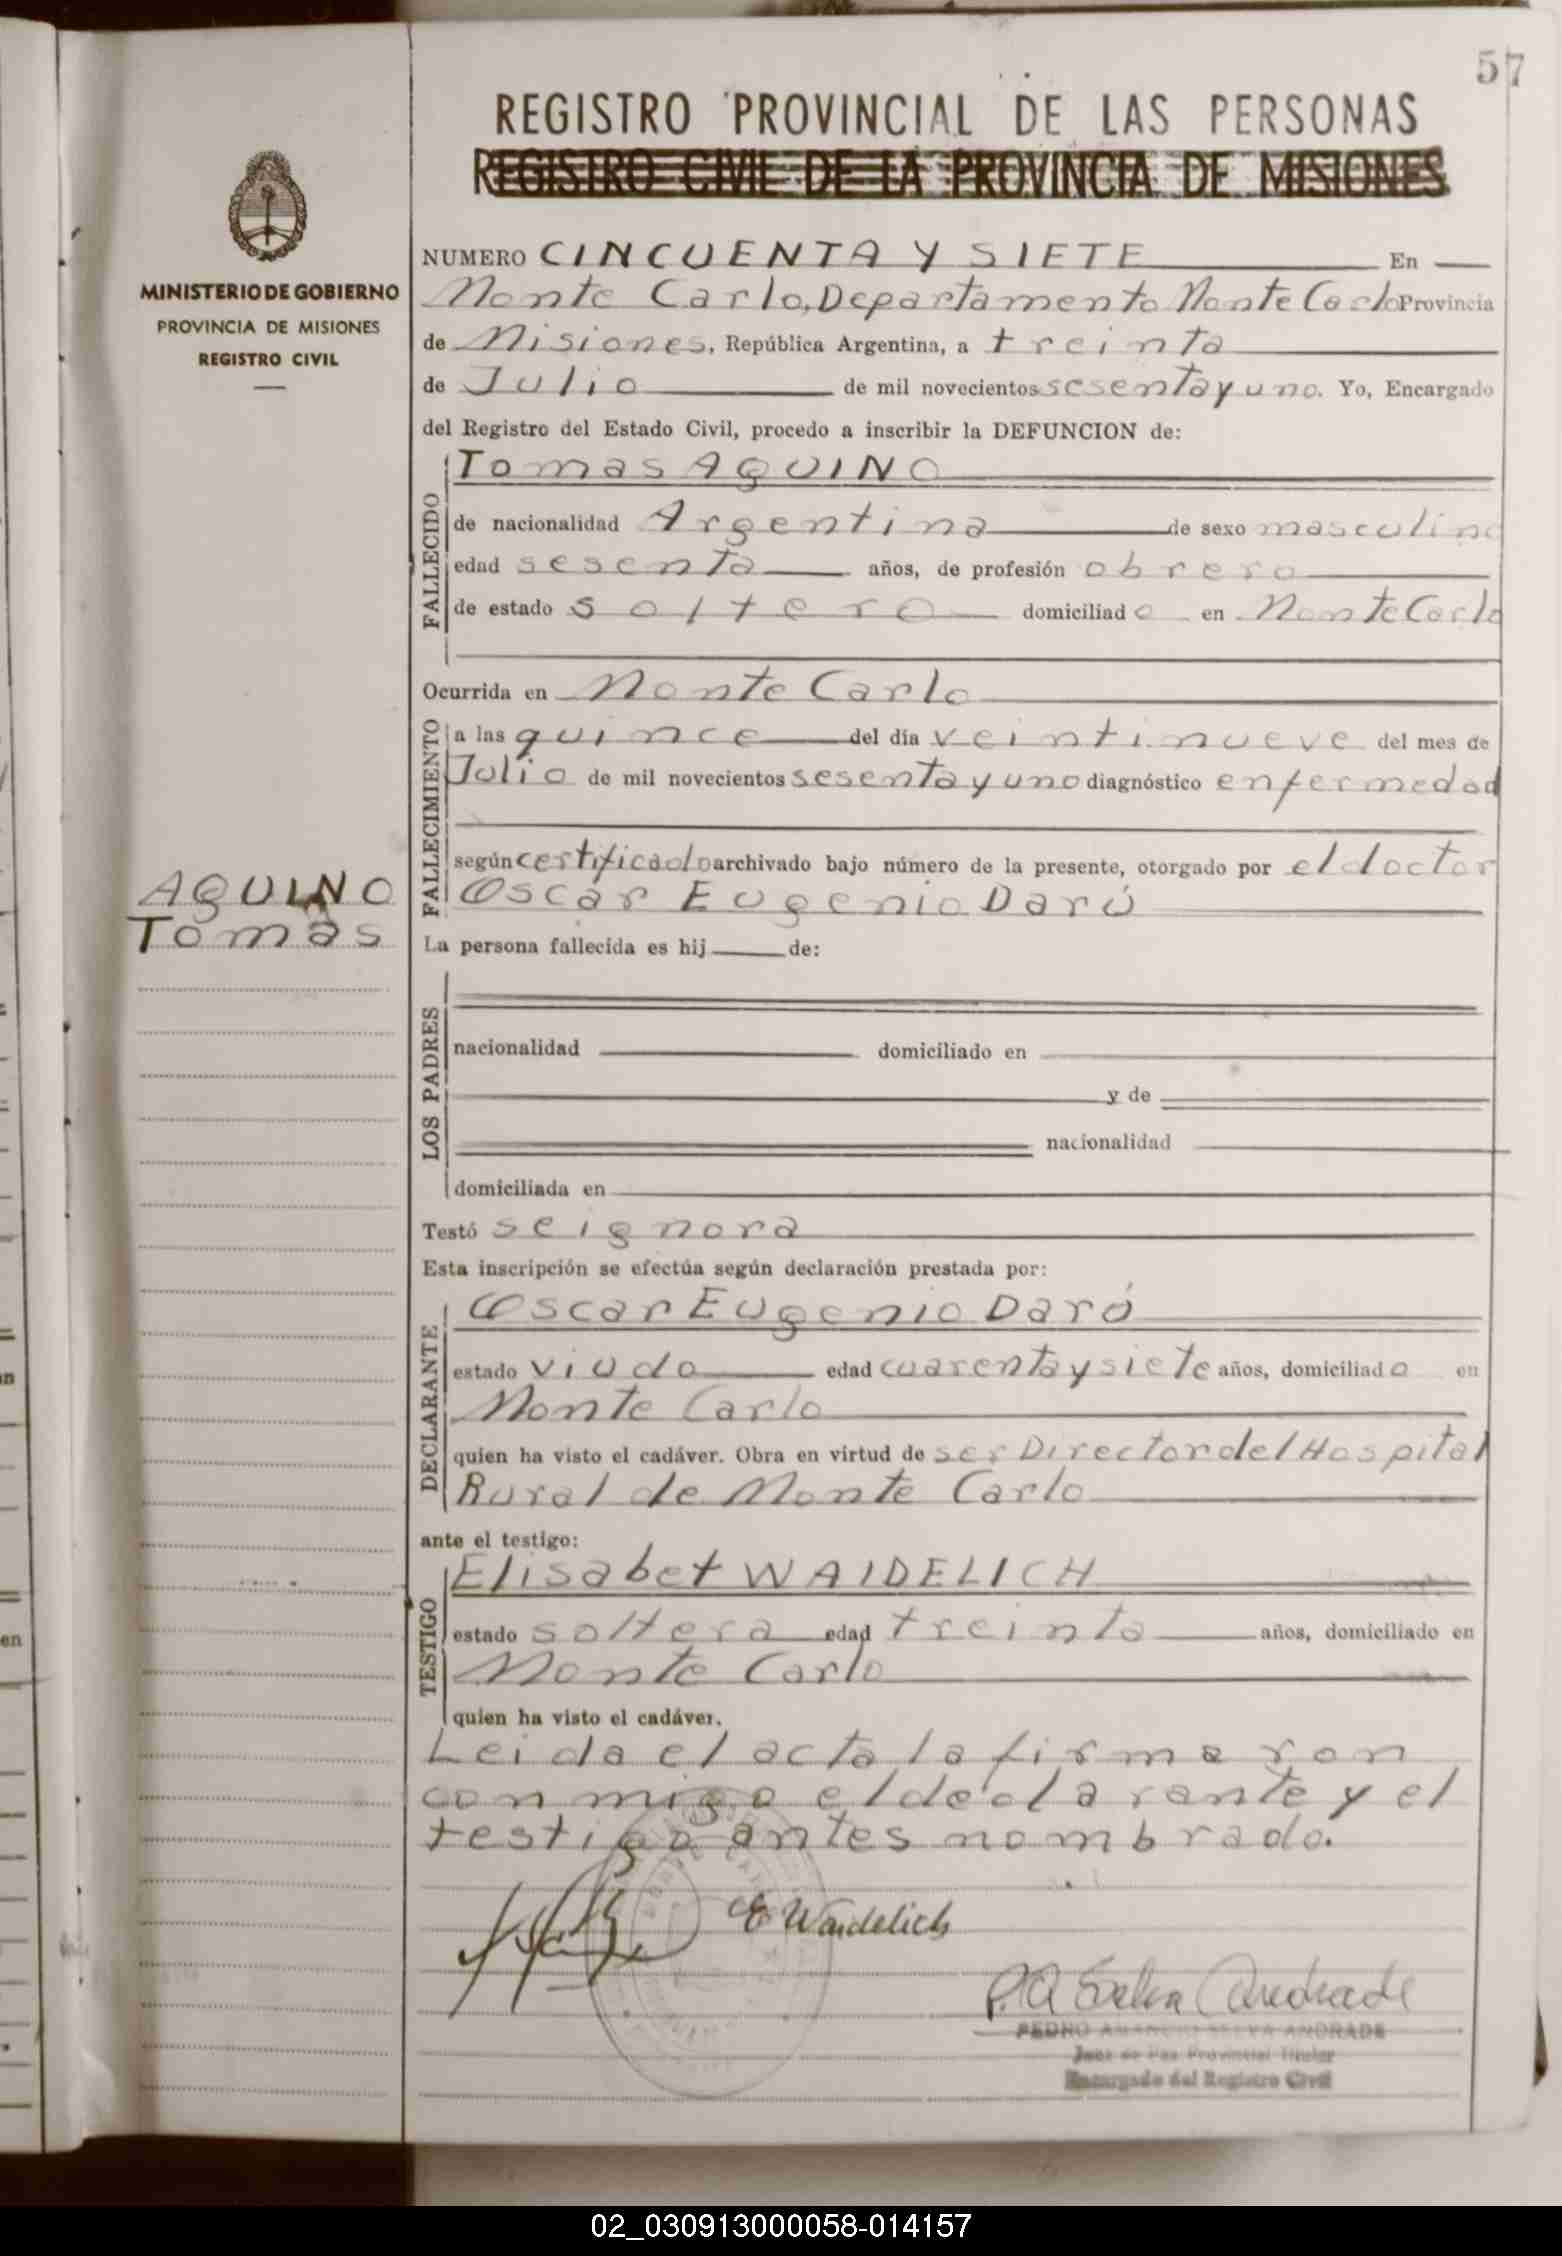 57
REGISTRO PROVINCIAL DE LAS PERSONAS
REGISTRO CIVIL DE LA PROVINCIA DE MISIONES
MINISTERIO DE GOBIERNO
PROVINCIA DE MISIONES
REGISTRO CIVIL
AQUINO
Tomás
NUMERO CINCUENTA Y SIETE En
Monte Carlo, Departamento Monte Carlo Provincia
de Misiones, República Argentina, a treinta
de Julio de mil novecientos sesenta y uno. Yo, Encargado
del Registro del Estado Civil, procedo a inscribir la DEFUNCION de:
FALLECIDO
Tomas AQUINO
de nacionalidad Argentina de sexo masculino
edad sesenta años, de profesión obrero
de estado soltero domiciliado en Monte Carlo
Ocurrida en Monte Carlo
FALLECIMIENTO
a las quince del día veintinueve del mes de
Julio de mil novecientos sesenta y uno diagnóstico enfermedad
según certificado archivado bajo número de la presente, otorgado por el doctor
Oscar Eugenio Daró
La persona fallecida es hij de:
LOS PADRES
nacionalidad domiciliado en
y de
nacionalidad
domiciliada en
Testó se ignora
Esta inscripción se efectúa según declaración prestada por:
DECLARANTE
Oscar Eugenio Daró
estado viudo edad cuarenta y siete años, domiciliado en
Monte Carlo
quien ha visto el cadáver. Obra en virtud de ser Director del Hospital
Rural de Monte Carlo
ante el testigo:
TESTIGO
Elisabet WAIDELICH
estado soltera edad treinta años, domiciliado en
Monte Carlo
quien ha visto el cadáver.
Leida el acta la firmaron
conmigo el declarante y el
testigo antes nombrado.
E Waidelich
P.A Selva Andrade
PEDRO AMANCIO SELVA ANDRADE
Juez de Paz Provincial Titular
Encargado del Registro Civil
02_030913000058-014157